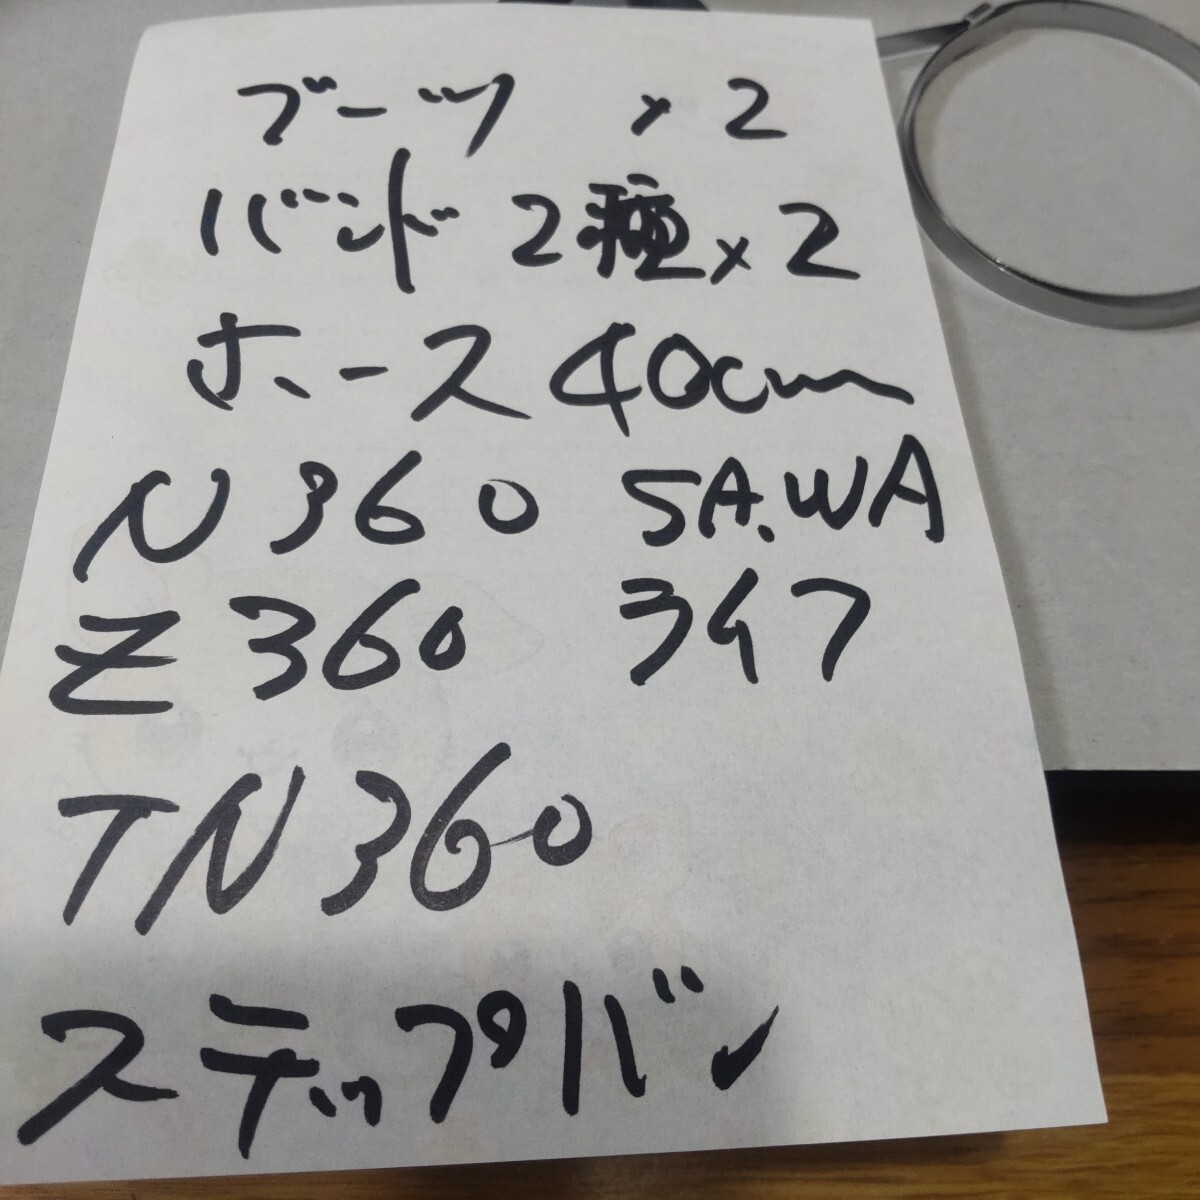 ブーツ ×2
バンド2種×2
ホース40cm
N360 SA.WA
Z360 347
TN360
ステップバン